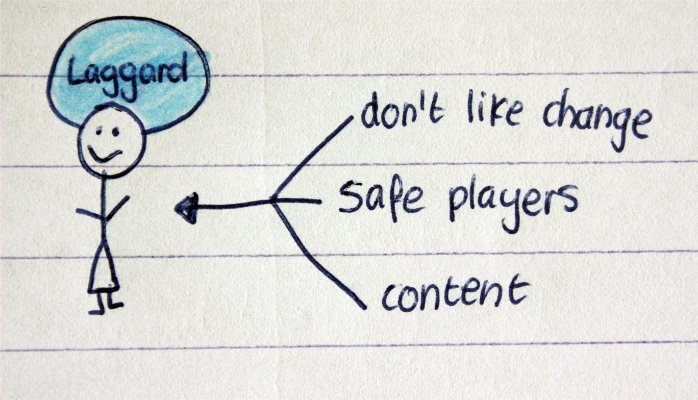 Laggard
don't like change
safe players
content